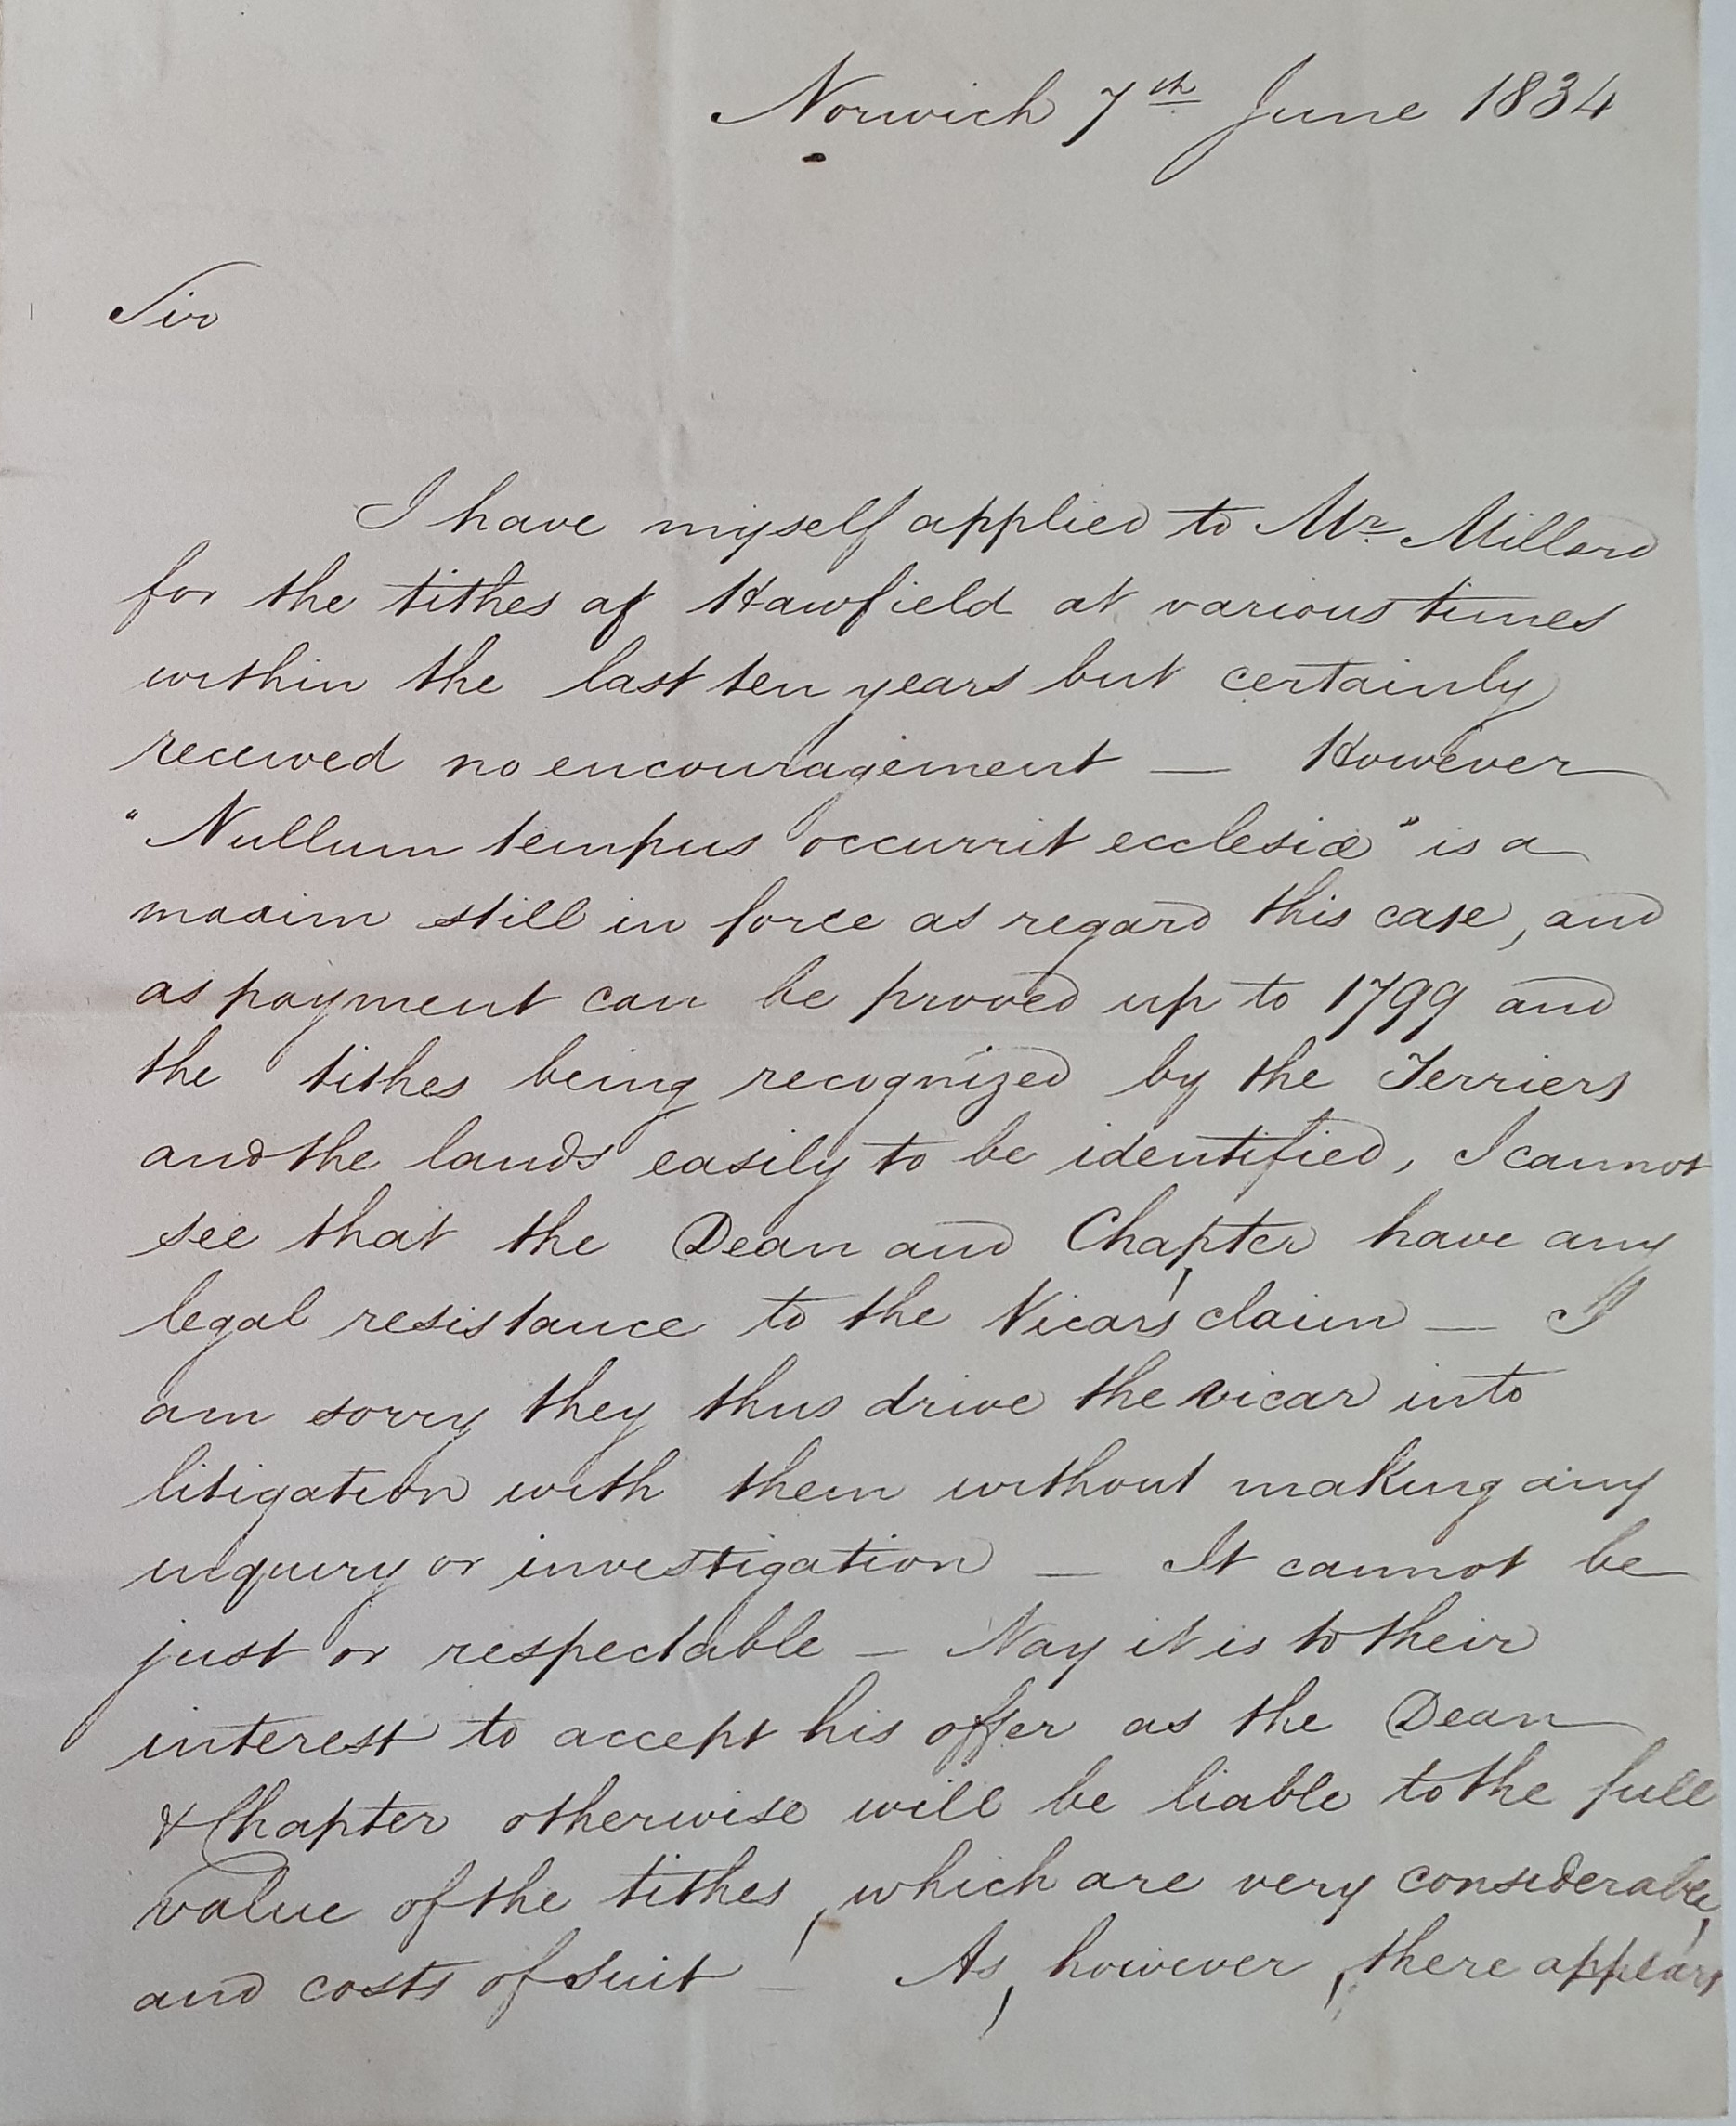 Norwich 7th June 1834
Sir
I have myself applied to Mr. Millard
for the tithes of Hawfield at various times
within the last ten years but certainly
received no encouragement — However
"Nullum tempus occurrit ecclesiæ" is a
maxim still in force as regard this case, and
as payment can be proved up to 1799 and
the tithes being recognized by the Terriers
and the lands easily to be identified, I cannot
see that the Dean and Chapter have any
legal resistance to the Vicar's claim — I
am sorry they thus drive the vicar into
litigation with them without making any
inquiry or investigation — It cannot be
just or respectable — Nay it is to their
interest to accept his offer as the Dean
& Chapter otherwise will be liable to the full
value of the tithes, which are very considerable,
and costs of suit — As, however, there appears